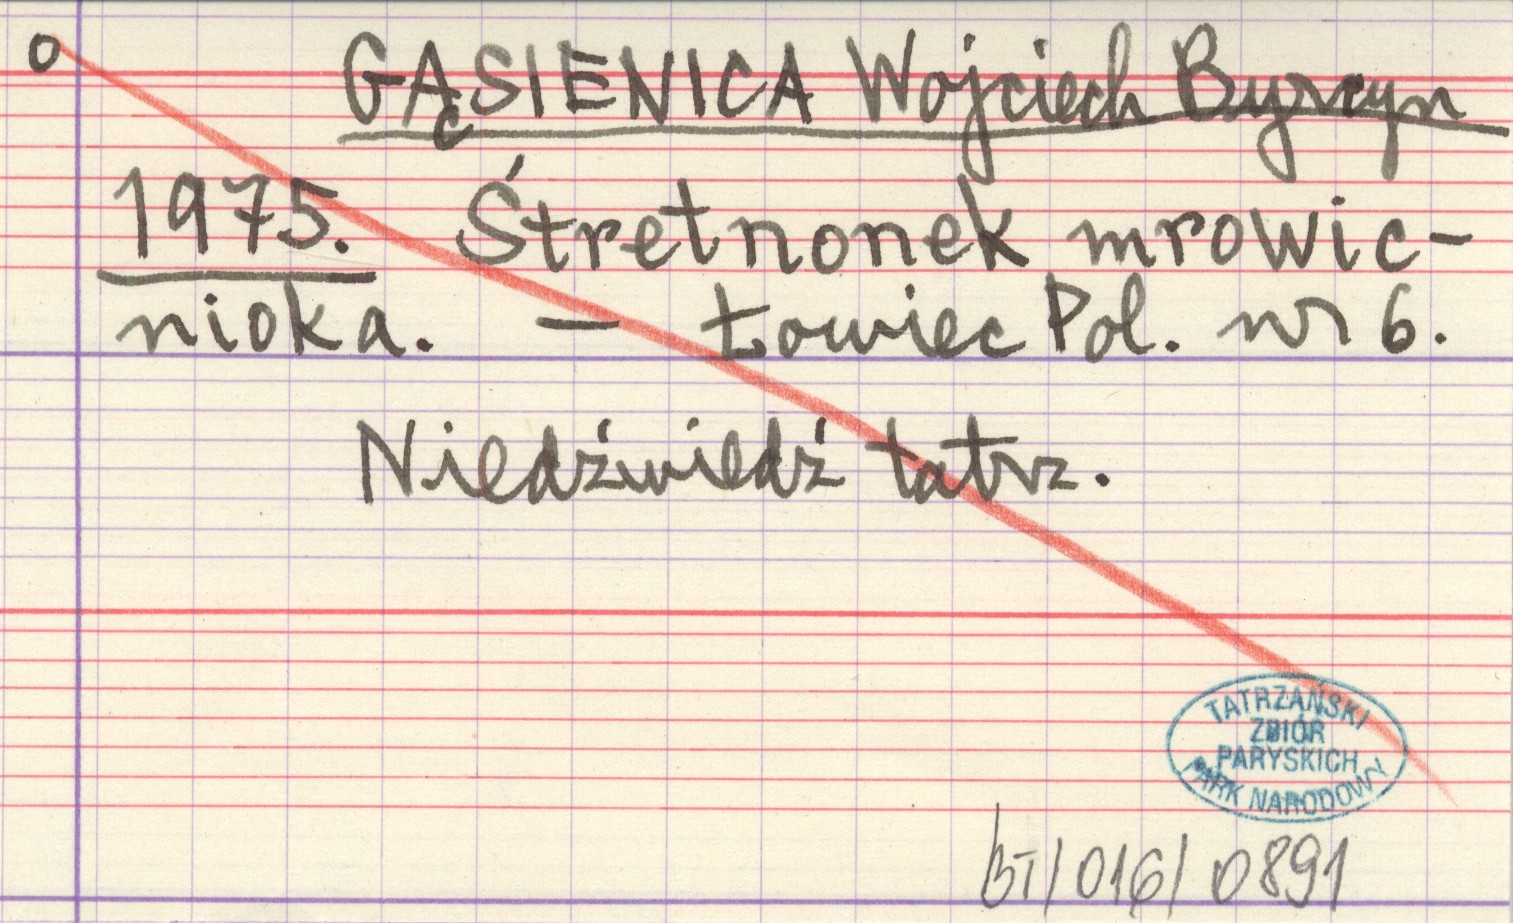 o GĄSIENICA Wojciech Byrcyn
1975. Śtretnonek mrowic-
nioka. — Łowiec Pol. nr 6.
Niedźwiedź tatrz.
TATRZAŃSKI
ZBIÓR
PARYSKICH
PARK NARODOWY
BT/016/0891